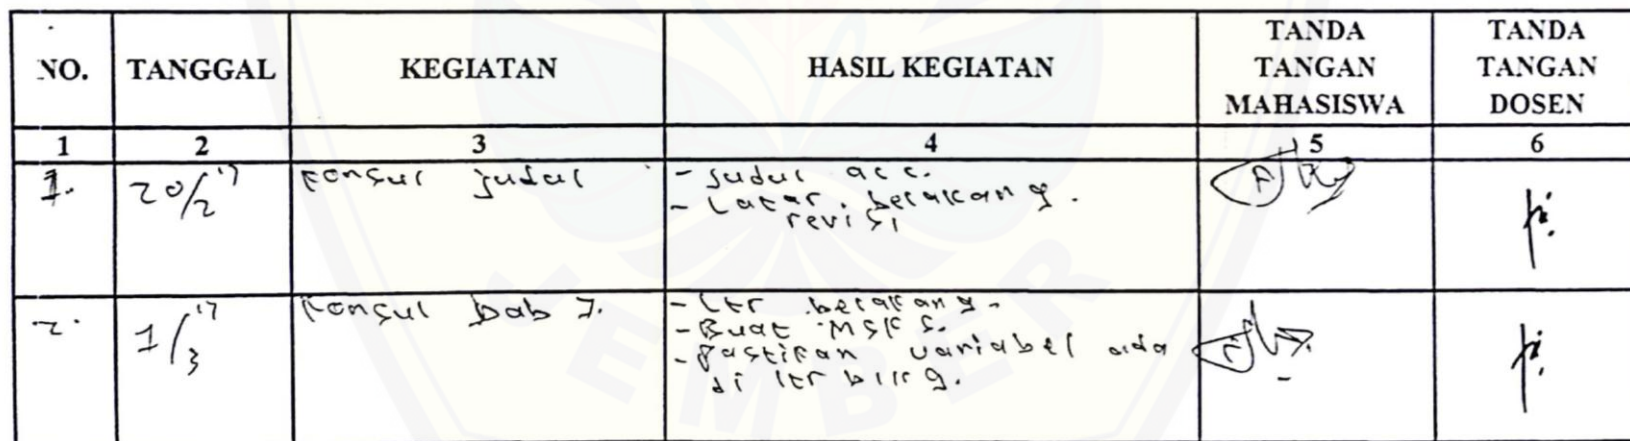 NO. TANGGAL KEGIATAN HASIL KEGIATAN TANDA TANGAN MAHASISWA TANDA TANGAN DOSEN
1 2 3 4 5 6
1. 20/2 '17 konsul judul - judul acc.
- Latar belakang.
revisi
2. 1/3 '17 konsul bab 1. - ltr belakang.
- Buat MSKS.
- Pastikan variabel ada
di ltr blkg.
EMBER